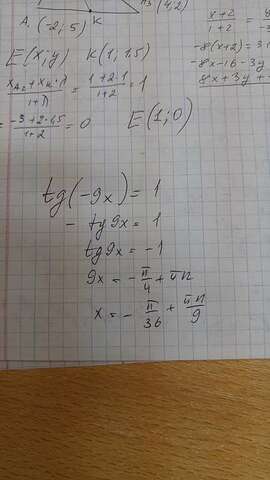 A₃ (4,2)
A. (-2; 5) K
E(x; y) K(1, 1.5)
(x_A₂ + x_K · λ)/(1+λ) = (1+2·1)/(1+2) = 1
= (-3+2·1,5)/(1+2) = 0 E(1; 0)
(x+2)/(1+2) = (y-5)/
-8(x+2) = 3
-8x-16 = 3y
8x + 3y +
tg(-9x) = 1
- tg9x = 1
tg9x = -1
9x = - π/4 + πn
x = - π/36 + πn/9